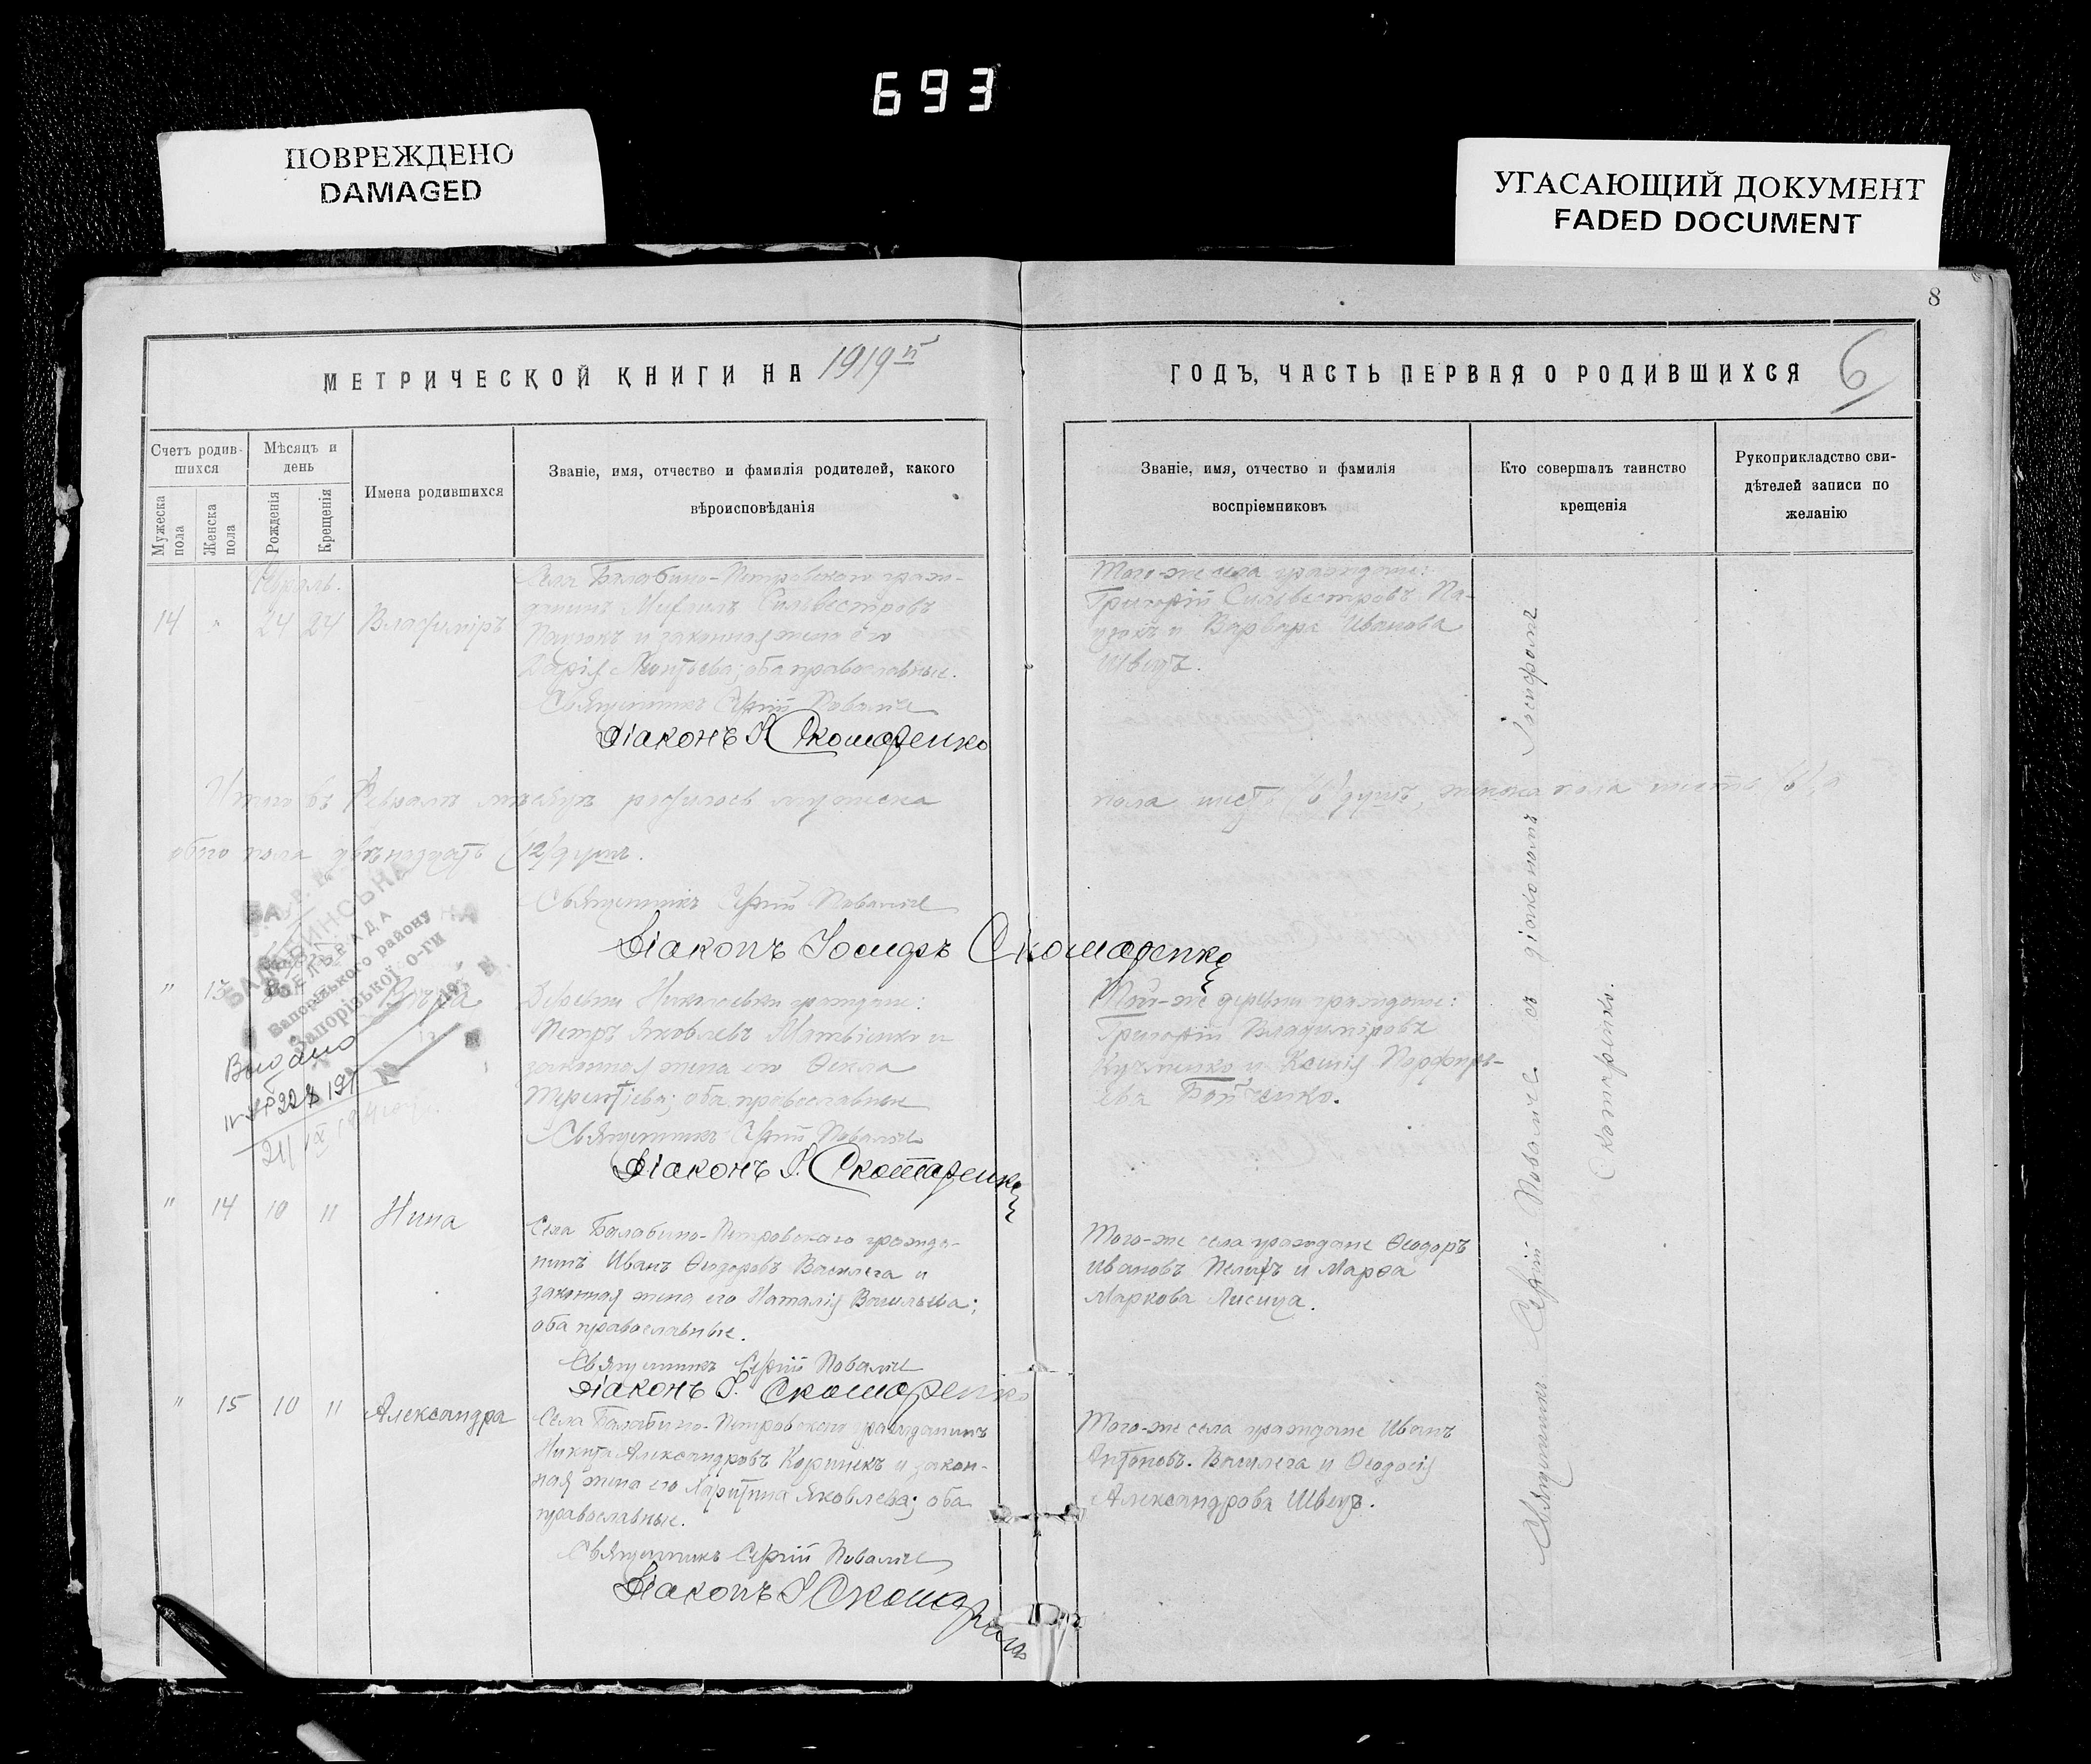 693
ПОВРЕЖДЕНО
DAMAGED
УГАСАЮЩИЙ ДОКУМЕНТ
FADED DOCUMENT
8
МЕТРИЧЕСКОЙ КНИГИ НА 1919й
ГОДЪ, ЧАСТЬ ПЕРВАЯ О РОДИВШИХСЯ
6
Счетъ родив-
шихся
Мужеска
пола
Женска
пола
Мѣсяцъ и
день
Рожденія
Крещенія
Имена родившихся
Званіе, имя, отчество и фамилія родителей, какого
вѣроисповѣданія
Званіе, имя, отчество и фамилія
воспріемниковъ
Кто совершалъ таинство
крещенія
Рукоприкладство сви-
дѣтелей записи по
желанію
14 " 24 24 Владиміръ
Села Балабино-Петровскаго граж-
данинъ Михаилъ Сильвестровъ
и законная жена его
Дарія Леонтьева; оба православные.
Священникъ Сергій Поваличе
Діаконъ І Скомаренко
Того-же села граждане:
Григорій Сильвестровъ Па-
и Варвара Иванова
Швецъ.
Итого въ Февралѣ мѣсяцѣ родилось мужеска
пола шесть /6/ душъ, женска пола шесть /6/, а
обего пола двѣнадцать /12/ душъ.
Священникъ Сергій Поваличе
Діаконъ Іосифъ Скомаренко
Запорізького району
Запорізької о-ги
Видано
" Вѣра
Деревни Николаевки граждане:
Петръ Яковлевъ Матвіенко и
законная жена его Ѳекла
Терентіева; оба православные
Священникъ Сергій Поваличе
Діаконъ І. Скомаренко
Той-же деревни граждане:
Григорій Владиміровъ
Кузменко и Ксенія Порфирь-
ева
" 14 10 11 Нина
Села Балабино-Петровскаго гражда-
нинъ Иванъ Ѳеодоровъ Василега и
законная жена его Наталія Васильева;
оба православные.
Священникъ Сергій Поваличе
Діаконъ І. Скомаренко
Того-же села граждане Ѳеодоръ
Ивановъ и Марѳа
Маркова Лисица.
" 15 10 11 Александра
Села Балабино-Петровскаго гражданинъ
Никита Александровъ Коринекъ и закон-
ная жена его Харитина Яковлева; оба
православные.
Священникъ Сергій Поваличе
Діаконъ І Скомаренко
Того-же села граждане Иванъ
Антоновъ. Василега и Ѳеодосія
Александрова Швецъ.
Священникъ Сергій Поваличе съ діакономъ Іосифомъ
Скомаренко.